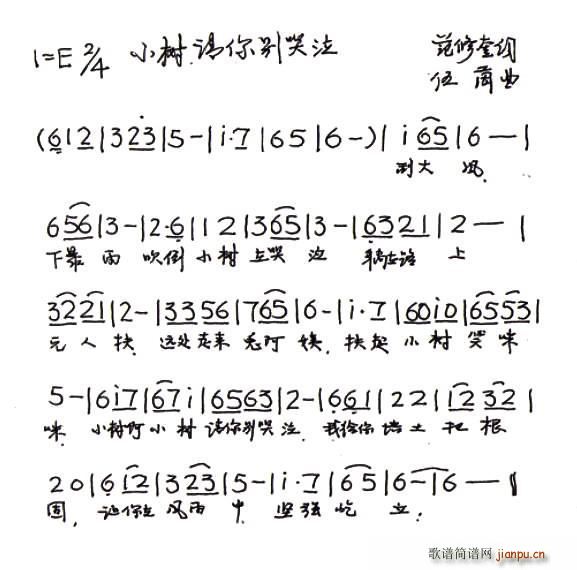 1=E 2/4 小树请你别哭泣
伍 曲
(6 1 2 | 3 2 3 | 5 - | i· 7 | 6 5 | 6 - ) | i 6 5 | 6 — |
刮大 风
6 5 6 | 3 - | 2· 6 | 1 2 | 3 6 5 | 3 - | 6 3 2 1 | 2 — |
下暴 雨 吹倒 小 树 哭 泣 上
3 2 2 1 | 2 - | 3 3 5 6 | 7 6 5 | 6 - | i· 7 | 6 0 i 0 | 6 5 5 3 |
无 人 扶 远处走来 阿 姨 扶起 小 树 笑 咪
5 - | 6 i 7 | 6 7 i | 6 5 6 3 | 2 - | 6 6 1 | 2 2 | 1 2 3 2 |
咪 小树阿 小 树 请你别哭泣 我给你 培 土 把 根
2 0 | 6 1 2 | 3 2 3 | 5 - | i· 7 | 6 5 | 6 - | 6 — ‖
固, 让你在 风雨 中 坚强 屹 立.
歌谱简谱网
jianpu.cn